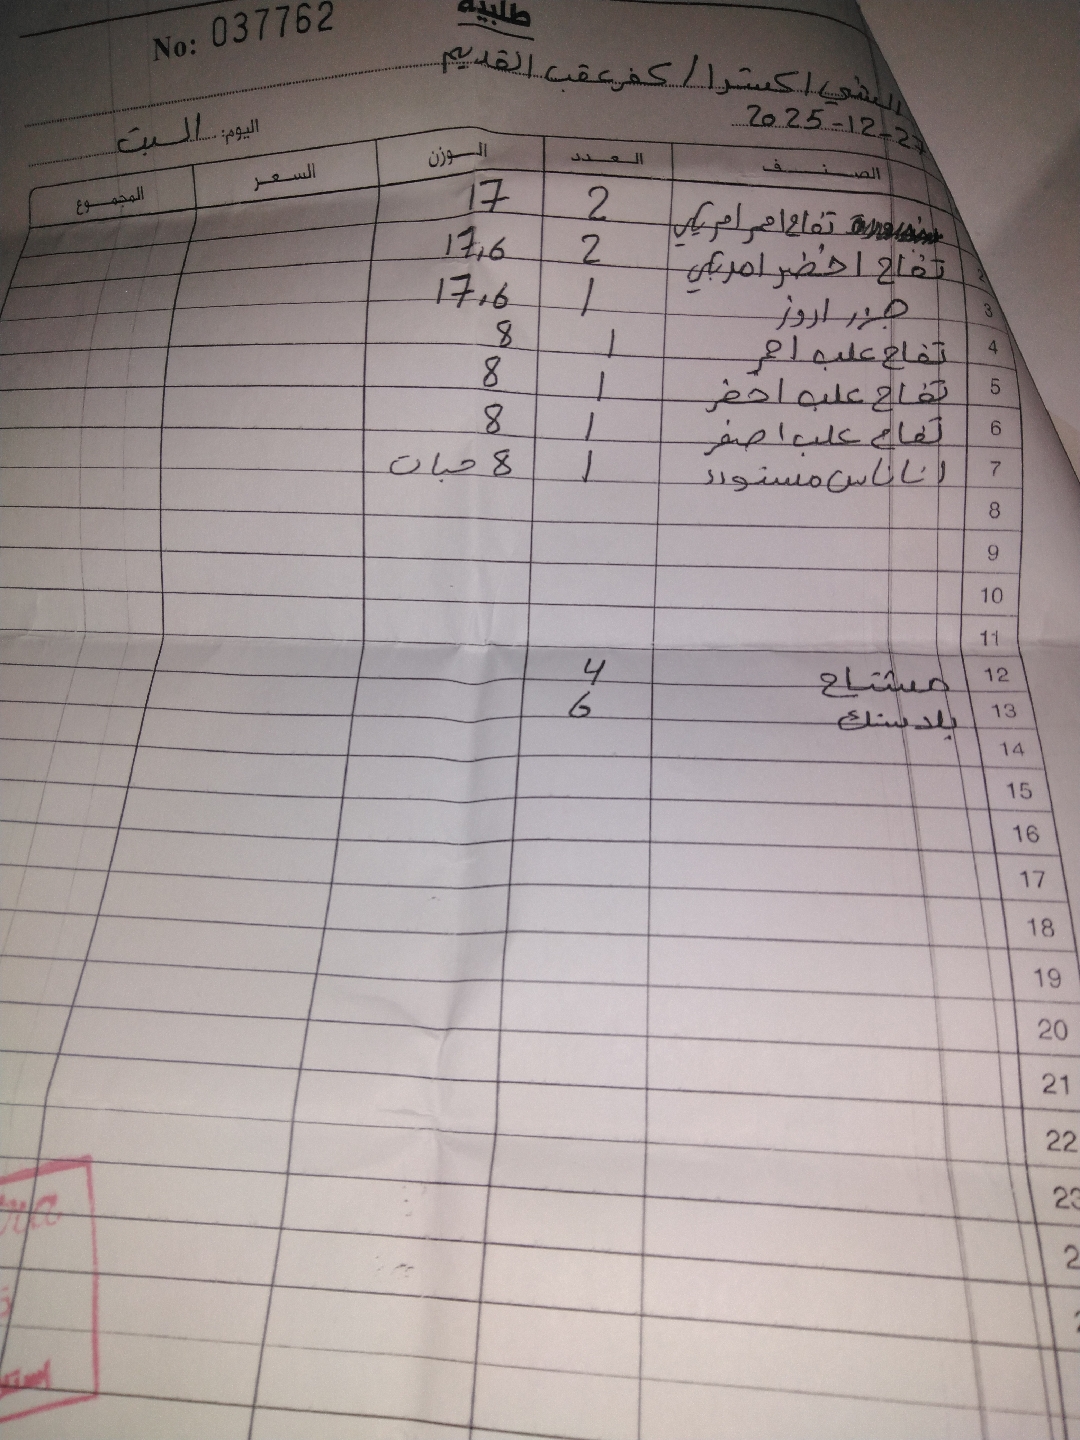 طلبية
No: 037762
الشني اكسترا / كفر عقب القديم
2025-12-27
اليوم: السبت
الصنف العدد الوزن السعر المجموع
تفاح احمر امريكي 2 17
2 تفاح اخضر امريكي 2 17,6
3 جزر اروز 1 17,6
4 تفاح علب احمر 1 8
5 تفاح علب اخضر 1 8
6 تفاح علب اصفر 1 8
7 اناناس مستورد 1 8 حبات
8
9
10
11
12 مشتاح 4
13 بلاستك 6
14
15
16
17
18
19
20
21
22
23